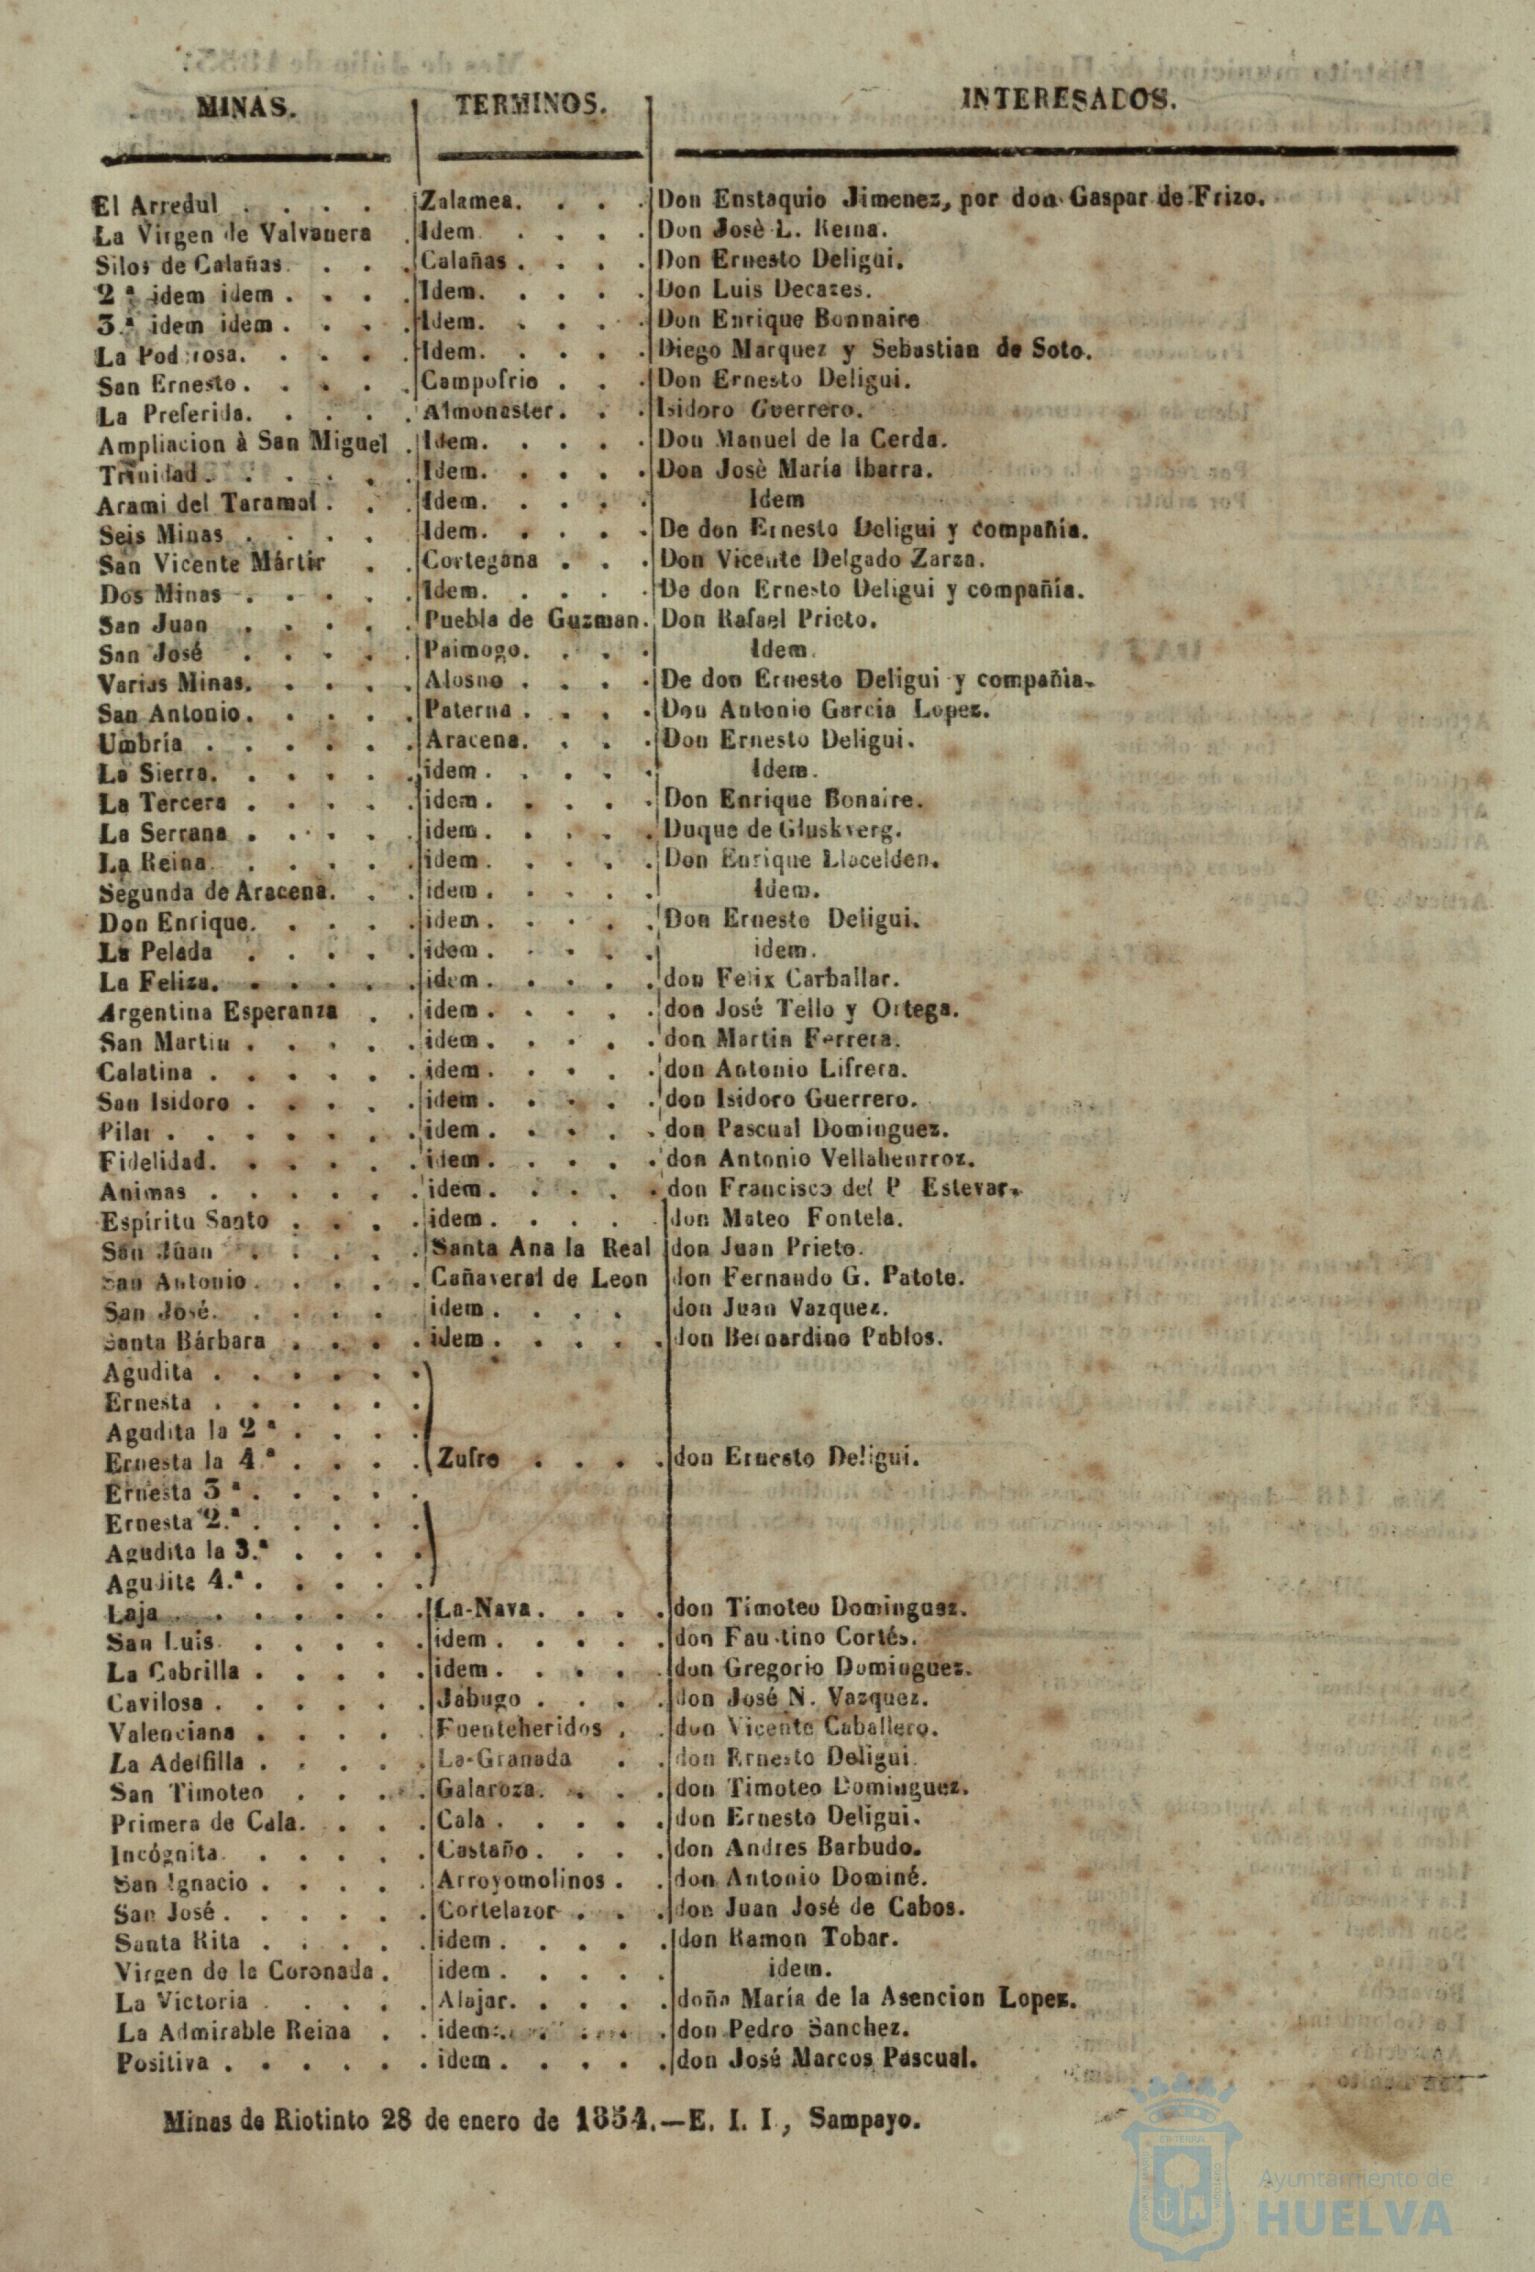 MINAS. TERMINOS. INTERESADOS.
El Arredul . . . . Zalamea. . . . Don Enstaquio Jimenez, por don Gaspar de Frizo.
La Virgen de Valvanera . Idem . . . . Don Josè L. Reina.
Silos de Calañas. . . . Calañas . . . . Don Ernesto Deligui.
2.ª idem idem . . . . Idem. . . . . Don Luis Decazes.
3.ª idem idem . . . . Idem. . . . . Don Enrique Bonnaire
La Poderosa. . . . . Idem. . . . . Diego Marquez y Sebastian de Soto.
San Ernesto . . . . . Campofrio . . . Don Ernesto Deligui.
La Preferida. . . . . Almonaster. . . Isidoro Guerrero.
Ampliacion à San Miguel . Idem. . . . . Don Manuel de la Cerda.
Trinidad . . . . . . Idem. . . . . Don Josè María Ibarra.
Arami del Taramal . . . Idem. . . . . Idem
Seis Minas . . . . . Idem. . . . . De don Ernesto Deligui y compañía.
San Vicente Mártir . . Cortegana . . . Don Vicente Delgado Zarza.
Dos Minas . . . . . Idem. . . . . De don Ernesto Deligui y compañía.
San Juan . . . . . Puebla de Guzman. Don Rafael Prieto.
San José . . . . . Paimogo. . . . Idem.
Varias Minas. . . . . Alosno . . . . De don Ernesto Deligui y compañia.
San Antonio. . . . . Paterna . . . . Don Antonio Garcia Lopez.
Umbría . . . . . . Aracena. . . . Don Ernesto Deligui.
La Sierra. . . . . . idem . . . . . Idem.
La Tercera . . . . . idem . . . . . Don Enrique Bonaire.
La Serrana . . . . . idem . . . . . Duque de Gluskverg.
La Reina. . . . . . idem . . . . . Don Enrique Llacelden.
Segunda de Aracena. . . idem . . . . . Idem.
Don Enrique. . . . . idem . . . . . Don Ernesto Deligui.
La Pelada . . . . . idem . . . . . idem.
La Feliza. . . . . . idem . . . . . don Felix Carballar.
Argentina Esperanza . . idem . . . . . don José Tello y Ortega.
San Martin . . . . . idem . . . . . don Martin Ferrera.
Calatina . . . . . . idem . . . . . don Antonio Lifrera.
San Isidoro . . . . . idem . . . . . don Isidoro Guerrero.
Pilar . . . . . . . idem . . . . . don Pascual Dominguez.
Fidelidad. . . . . . idem. . . . . don Antonio Vellahenrroz.
Animas . . . . . . idem. . . . . don Francisco del P Estevar.
Espíritu Santo . . . . idem . . . . . don Mateo Fontela.
San Juan . . . . . Santa Ana la Real don Juan Prieto.
San Antonio . . . . . Cañaveral de Leon don Fernando G. Patote.
San José. . . . . idem . . . . don Juan Vazquez.
Santa Bárbara . . . . idem . . . . . don Bernardino Pablos.
Agudita . . . . . .
Ernesta . . . . . .
Agudita la 2ª . . . .
Ernesta la 4.ª . . . . Zufre . . . . don Ernesto Deligui.
Ernesta 3ª . . . . .
Ernesta 2.ª . . . . .
Agudita la 3.ª . . . .
Agudita 4.ª . . . . .
Laja . . . . . . . La-Nava. . . . don Timoteo Dominguez.
San Luis. . . . . . idem . . . . . don Faustino Cortés.
La Cabrilla . . . . . idem . . . . . don Gregorio Dominguez.
Cavilosa . . . . . . Jabugo . . . . don José N. Vazquez.
Valenciana . . . . . Fuenteheridos . . don Vicente Caballero.
La Adelfilla . . . . . La-Granada . . don Ernesto Deligui.
San Timoteo . . . . Galaroza. . . . don Timoteo Dominguez.
Primera de Cala. . . . Cala . . . . . don Ernesto Deligui.
Incógnita. . . . . . Castaño . . . . don Andres Barbudo.
San Ignacio . . . . . Arroyomolinos . . don Antonio Dominé.
San José . . . . . . Cortelazor . . . don Juan José de Cabos.
Santa Rita . . . . . idem . . . . . don Ramon Tobar.
Virgen de la Coronada . idem . . . . . idem.
La Victoria . . . . . Alajar. . . . . don̄a María de la Asencion Lopez.
La Admirable Reina . . idem . . . . . don Pedro Sanchez.
Positiva . . . . . . idem . . . . . don José Marcos Pascual.
Minas de Riotinto 28 de enero de 1854.—E. I. I, Sampayo.
Ayuntamiento de
HUELVA